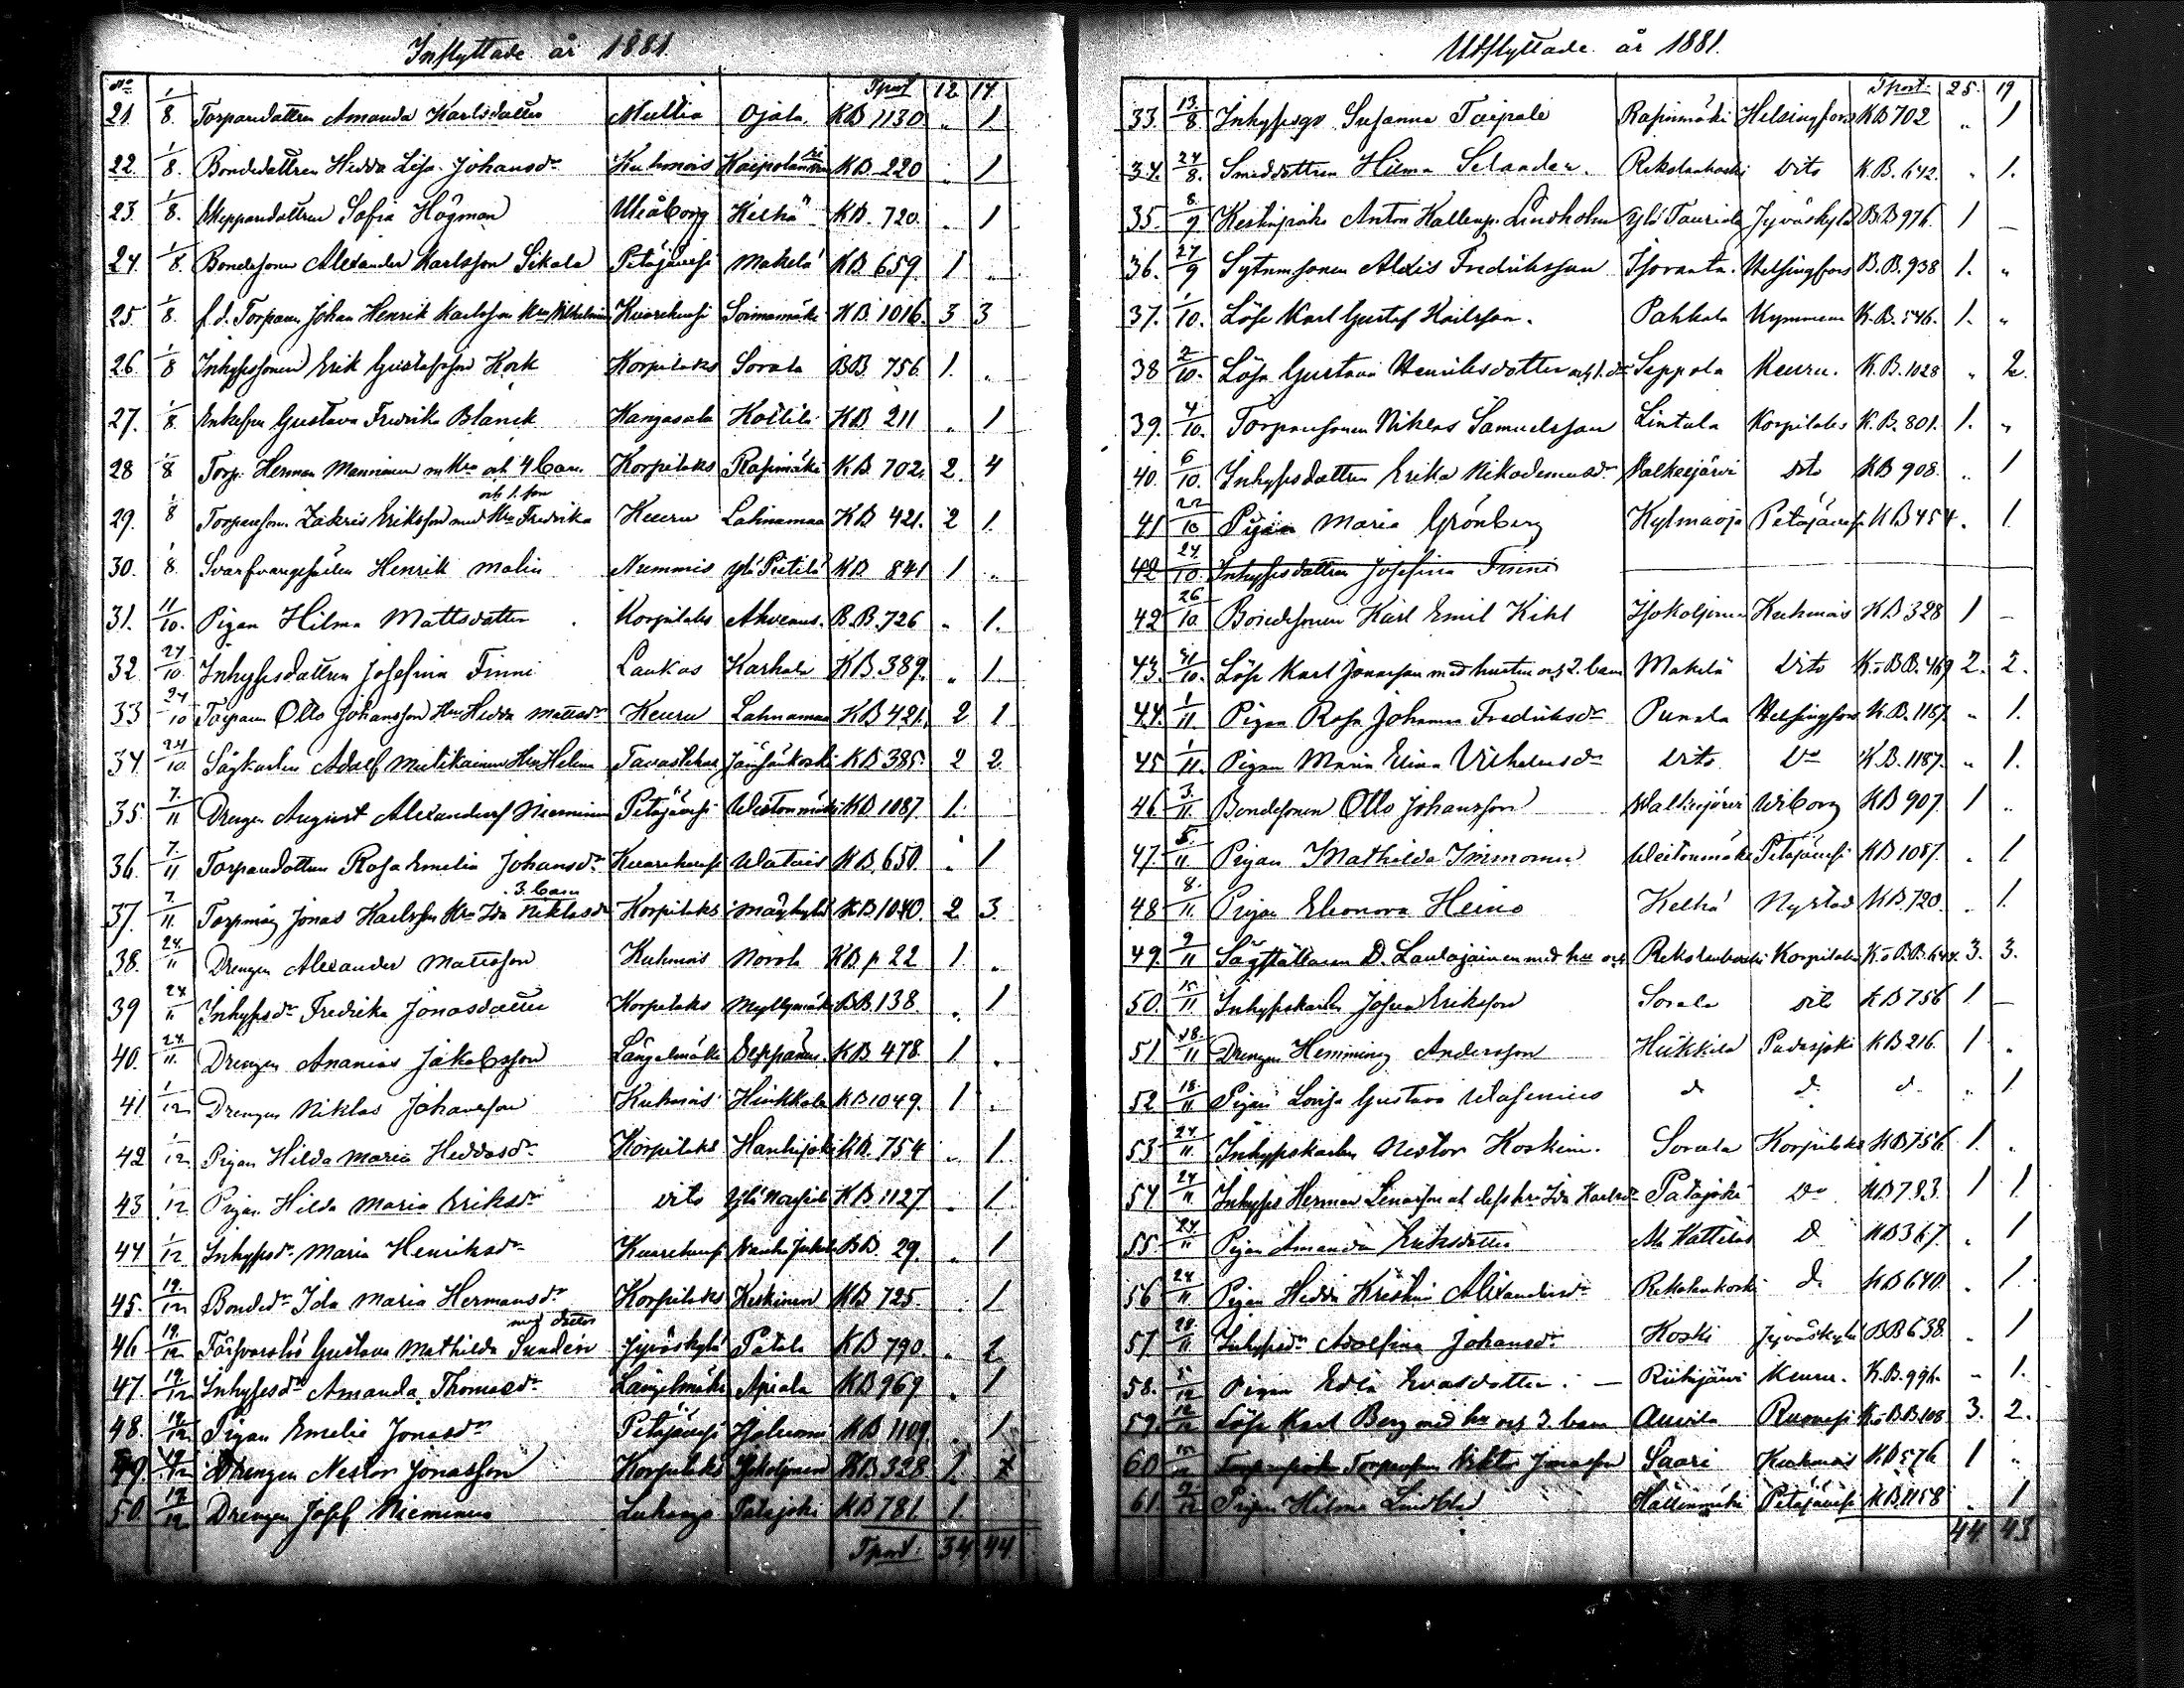 Inflyttade år 1881.
No Tport 12 17.
21. 1/8. Torpardottren Amanda Karlsdotter Multia Ojala KB 1130 „ 1.
22. 1/8. Bondedottren Hedda Lisa Johansdr Kuhmois Kaipolan KB 220 „ 1
23. 1/8. Skeppardottren Sofia Högman Uleåborg Kelhä KB. 720. „ 1
24. 1/8. Bondesonen Alexander Karlsson Sikala Petäjävesi Mäkelä KB 659. 1 „
25. 1/8. f.d. Torparen Johan Henrik Karlsson Hru Vilhelmina Kuorehvesi Soimamäki KB. 1016. 3 3
26. 1/8 Inhysessonen Erik Gustafsson Kork Korpilaks Sorala BB. 756 1. „
27. 1/8. Enkefru Gustava Fredrika Blanck Kangasala Kottila KB 211 „ 1
28 1/8 Torp. Herman Manninen m Hru och 4 barn Korpilaks Rapinmäki KB 702. 2. 4
och 1. son
29. 1/8 Torparson. Zakris Eriksson med Hru Fredrika Keuru Lahnamaa KB 421. 2 1.
30. 1/8. Svarfvaregesällen Henrik Malin Nummis Yli Pietilä KB 841 1 „
31. 11/10. Pigan Hilma Mattsdotter Korpilaks Ahvenus. B.B. 726 „ 1.
32. 24/10. Inhysesdottren Josefina Finni Laukas Karhala KB 389. „ 1
33 24/10 Torparen Otto Johansson Hru Hedda Mattsdr Keuru Lahnamaa KB 421. 2 1
34. 24/10. Sågkarlen Adolf Mutikainen Hru Helena Tavastehus Jämsänkoski KB 385. 2 2.
35. 7./11 Drengen August Alexandersf Nieminen Petäjävesi Weitonmäki KB 1087 1.
36. 7./11 Torpardottren Rosa Emelia Johansdr Kuorehvesi Watais KB. 650. „ 1
3. barn
37. 7./11. Torpmåg Jonas Karlsson Hru Ida Niklasdr Korpilaks KB 1040. 2 3.
38. 24./11 Drengen Alexander Mattsson Kuhmois Norola KB p 22 1. „
39 24/11 Inhysdr Fredrika Jonasdotter Korpilaks Myllymäki BB. 138. „ 1
40. 24./11. Drengen Ananias Jakobsson Längelmäki Seppänus. KB 478. 1 „
41 1/12 Drengen Niklas Johansson Kuhmois Hinkkala KB 1049. 1 „
42 1/12 Pigan Hilda Maria Heddasdr Korpilaks Hanhijoki KB. 754 „ 1.
43 1/12. Pigan Hilda Maria Eriksdr dito KB. 1127. „ 1.
44 1/12 Inhysdr Maria Henriksdr Kuorehvesi BB. 29. „ 1
45. 19./12 Bondedr Ida Maria Hermansdr Korpilaks Keskinen KB 725. „ 1
med dotter
46 19./12 Försvarslös Gustava Mathilda Sundén Jyväskylä Patala KB 790. „ 2
47. 19./12 Inhysesdr Amanda Thomasdr Längelmäki Apiala KB 969 „ 1
48. 19./12 Pigan Emelia Jonasdr Petäjävesi KB 1109 „ 1
49. 19./12 Drengen Nestor Jonasson Korpilaks Isokoljonen KB 328 1.
50. 19./12 Drengen Josef Nieminen Luhanga Patajoki KB 781 1.
Tport. 34 44.
Utflyttade år 1881.
Tport. 25. 19
33. 13./8 Inhysesqv Susanna Taipale Rapinmäki Helsingfors KB 702 „ 1
34. 24/8. Smeddottren Hilma Selander. Rekolankoski Dito K.B. 642. „ 1.
35. 8./9 Anton Lindholm Yli Tauriala Jyväskylä B.B 976. 1 –
36. 27/9 Sytnmsonen Alexis Fredriksson Isoranta. Helsingfors B.B. 938 1. „
37. 1/10. Löse Karl Gustaf Karlsson. Pahkala Kymmene K.B. 546. 1. „
38 2/10. Lösa Gustava Henriksdotter och 1. dr Seppola Keuru. K.B. 1028 „ 2.
39. 4/10. Torparsonen Niklas Samuelsson Lintula Korpilaks K.B. 801. 1. „
40. 6/10. Inhysesdottren Erika Nikodemusdr Walkeejärvi Dito KB 908. „ 1
41 22/10 Pigan Maria Grönberg Kylmäoja Petäjävesi KB 454. „ 1.
42 24./10. Inhysesdottren Josefina Finni
42 26/10. Bondesonen Karl Emil Kihl Isokoljonen Kuhmois KB 328 1 –
43. 31/10. Löse Karl Jonasson med hustru och 2. barn Mäkelä Dito K. o BB. 469 2. 2.
44. 1/11. Pigan Rosa Johanna Fredriksdr Punala Helsingfors K.B. 1187. „ 1.
45 1/11. Pigan Maria Elina Vilhelmsdr Dito Do K.B. 1187. „ 1.
46. 3./11. Bondesonen Otto Johansson Walkejärvi Wiborg KB 907. 1 „
47. 5./11 Pigan Mathilda Immonen Weitonmäki Petäjävesi KB 1087. „ 1.
48 8./11. Pigan Eleonora Heino Kelhä Nystad KB. 720. „ 1.
49. 9/11 Sågställaren D. Lautajainen med hu och Rekolankoski Korpilaks K. o B.B. 644. 3. 3.
50. 15/11. Inhyseskarlen Josua Eriksson Sorala dito KB 756 1 –
51 18./11 Drengen Hemming Andersson Heikkilä Padasjoki KB 216. 1 „
52 18./11 Pigan Lovisa Gustava Wasenius d d. d. „ 1
53 24./11. Inhyseskarlen Nestor Koskin. Sorala Korpilaks KB 756. 1. „
54. 24/11 Inhyses Herman Linasson och dess hru Ida Karlsdr Patajoki Do KB 783. 1 1.
55. 24./11 Pigan Amanda Eriksdotter Ala Kattilas D KB 367. „ 1
56 24/11 Pigan Hedda Kristina Alexandersdr Rekolankoski d. KB 640. „ 1.
57. 28/11 Inhysesdr Adolfina Johansdr Koski Jyväskylä BB 638. „ 1
58. 5/12 Pigan Edla Evasdotter. – Riihijärvi Keuru. K.B. 991. „ 1.
59. 12/12 Löse Karl Berg med hu och 3. barn Auvila Ruovesi K. o BB 108 3. 2.
60 Torparson Viktor Jonasson Saari Kuhmois KB 576 1 „
61. 9/12 Pigan Hilma Lindblad Hallinmäki Petäjävesi KB 1158 „ 1
44. 43